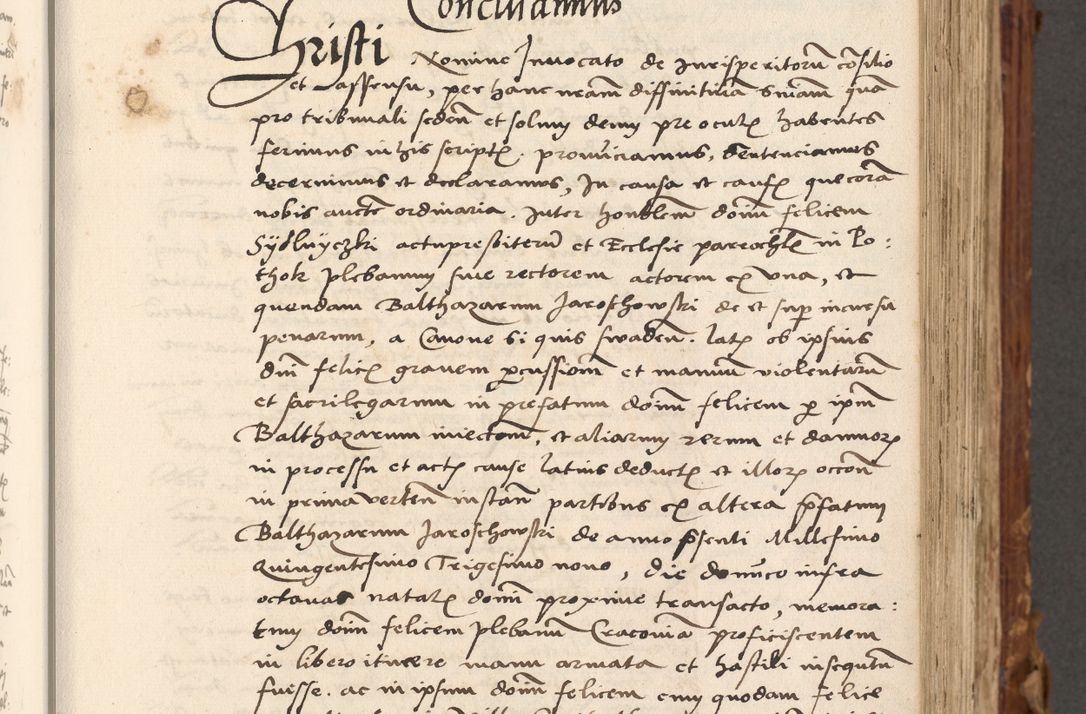 Concludamus
Christi Nomine Invocato de Jurisperitorũ cõsilio
et assensu, per hanc nrãm diffinitivã Sniãm quã
pro tribunali seden̄ et solum deum pre oculꝭ habentes
ferimus in his scriptꝭ. pronũciamus, Sentenciamus
decernimus et declaramus, In causa et causꝭ que corã
nobis aucte ordinaria. Inter honblem dominũ felicem
Sydlnyczki actupresbiterũ et Ecclesie parrochlꝭ in Po:
thok plebanum sive rectorem actorem ex una, et
quendam Balthazarum Jaroschowski de et sup incursu
penarum, a Canone Si quis swaden̄. latꝭ ob ipsius
dnĩ felicꝭ gravem ꝑcussionẽ et manuũ violentarũ
et sacrilegarum in prefatum dominũ felicem ꝑ ipm̃
Balthazarum iniectionẽ, et aliarum rerum et damnorꝝ
in processu et actꝭ cause latius deductꝭ et illorꝝ occõnẽ
in prima verten̄ instañ partibus ex altera prefatum
Balthazarum Jaroschowski de anno p̃senti Millesimo
Quingentesimo Trigesimo nono, die dominico infra
octavas natalꝭ domini proxime transacto, memora:
tum dominũ felicem plebanũ Cracoviã proficiscentem
in libero itinere manu armata et hastili insequtũ
fuisse. ac in ipsum dominũ felicem cum quodam felice